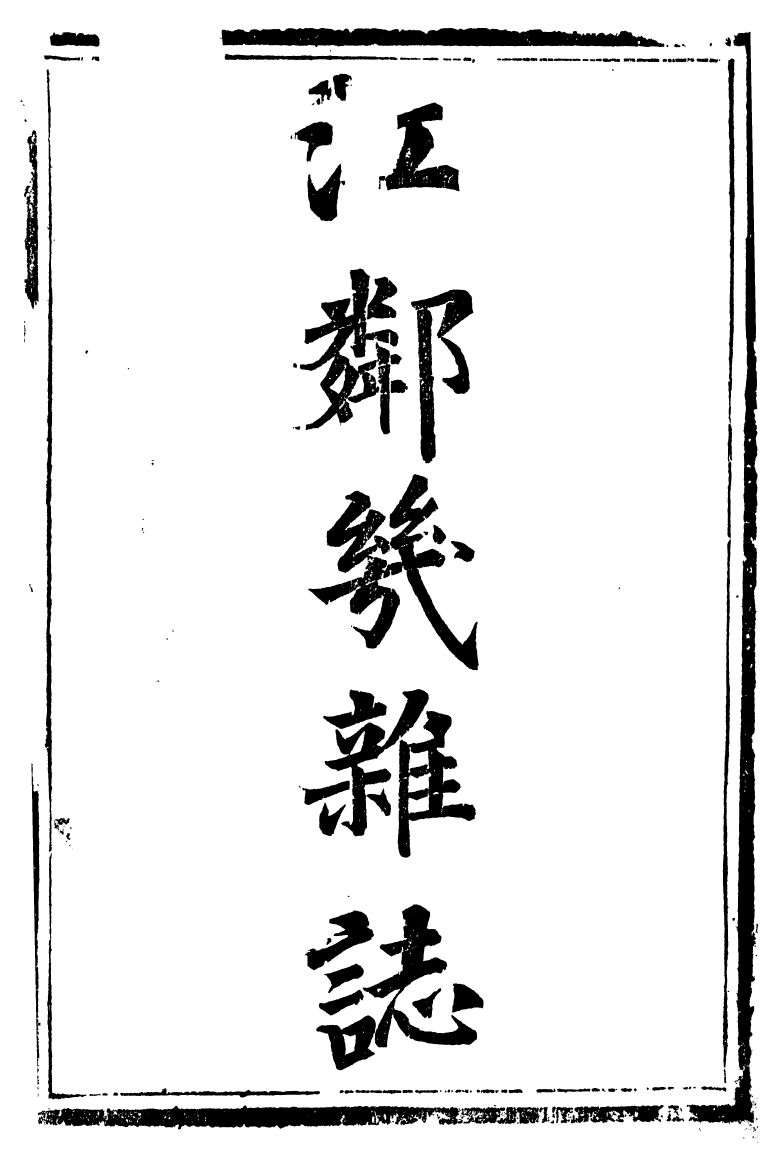 江鄰幾雜誌